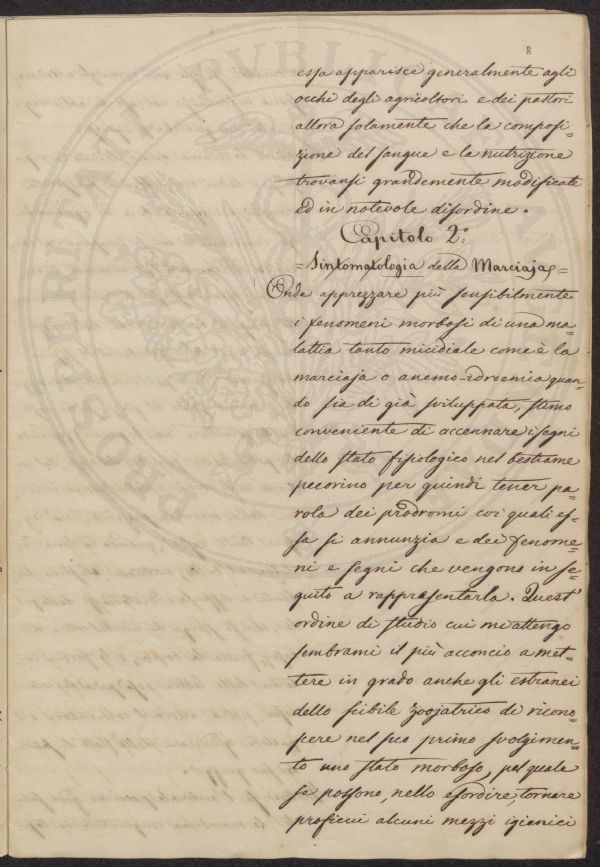 8
essa apparisce generalmente agli
occhi degli agricoltori e dei pastori
allora solamente che la composi=
zione del sangue e la nutrizione
trovansi grandemente modificate
ed in notevole disordine.
Capitolo 2.°
=Sintomatologia della Marciaja=
Onde apprezzare più sensibilmente
i fenomeni morbosi di una ma=
lattia tanto micidiale come è la
marciaja o anemo-idroemia quan=
do sia di già sviluppata, stimo
conveniente di accennare i segni
dello stato fisiologico nel bestiame
pecorino per quindi tener pa=
rola dei prodromi coi quali es=
sa si annunzia e dei fenome=
ni e segni che vengono in se=
guito a rappresentarla. Quest'
ordine di studio cui mi attengo
sembrami il più acconcio a met=
tere in grado anche gli estranei
dello scibile zoojatrico di ricono=
scere nel suo primo svolgimen=
to uno stato morboso, pel quale
se possono, nello esordire, tornare
proficui alcuni mezzi igienici
PROSPERITATI PVBLICAE